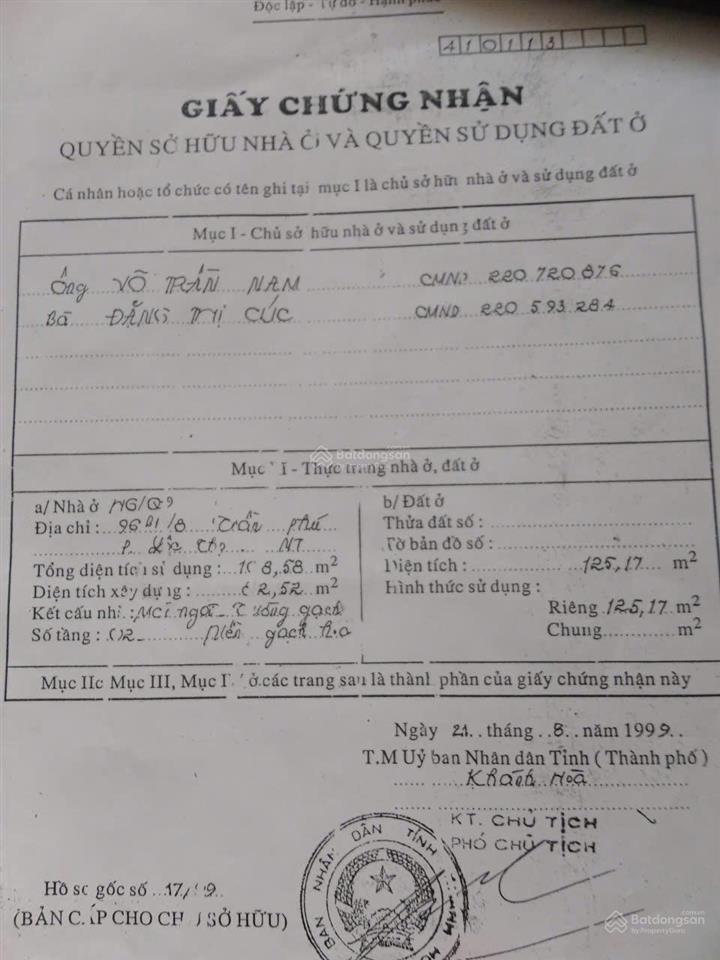 Độc lập - Tự do - Hạnh phúc
410113
GIẤY CHỨNG NHẬN
QUYỀN SỞ HỮU NHÀ Ở VÀ QUYỀN SỬ DỤNG ĐẤT Ở
Cá nhân hoặc tổ chức có tên ghi tại mục I là chủ sở hữu nhà ở và sử dụng đất ở
Mục I - Chủ sở hữu nhà ở và sử dụng đất ở
Ông VÕ TRẦN NAM CMND 220 720 876
Bà ĐẶNG THỊ CÚC CMND 220 593 284
Mục I - Thực trạng nhà ở, đất ở
a/ Nhà ở
Địa chỉ : Trần Phú
NT
Tổng diện tích sử dụng : 108,58 m2
Diện tích xây dựng : 2,52 m2
Kết cấu nhà : Mái ngói Tường gạch
Số tầng : 02 Nền gạch hoa
b/ Đất ở
Thửa đất số :
Tờ bản đồ số :
Diện tích : 125,17 m2
Hình thức sử dụng :
Riêng 125,17 m2
Chung m2
Mục IIc Mục III, Mục I ở các trang sau là thành phần của giấy chứng nhận này
Ngày 21 tháng 8 năm 1999
T.M Uỷ ban Nhân dân Tỉnh ( Thành phố )
Khánh Hoà
KT. CHỦ TỊCH
PHÓ CHỦ TỊCH
BAN NHÂN DÂN TỈNH
Hồ sơ gốc số 17/99
(BẢN CẤP CHO CHỦ SỞ HỮU)
Batdongsan
Batdongsan
by PropertyGuru